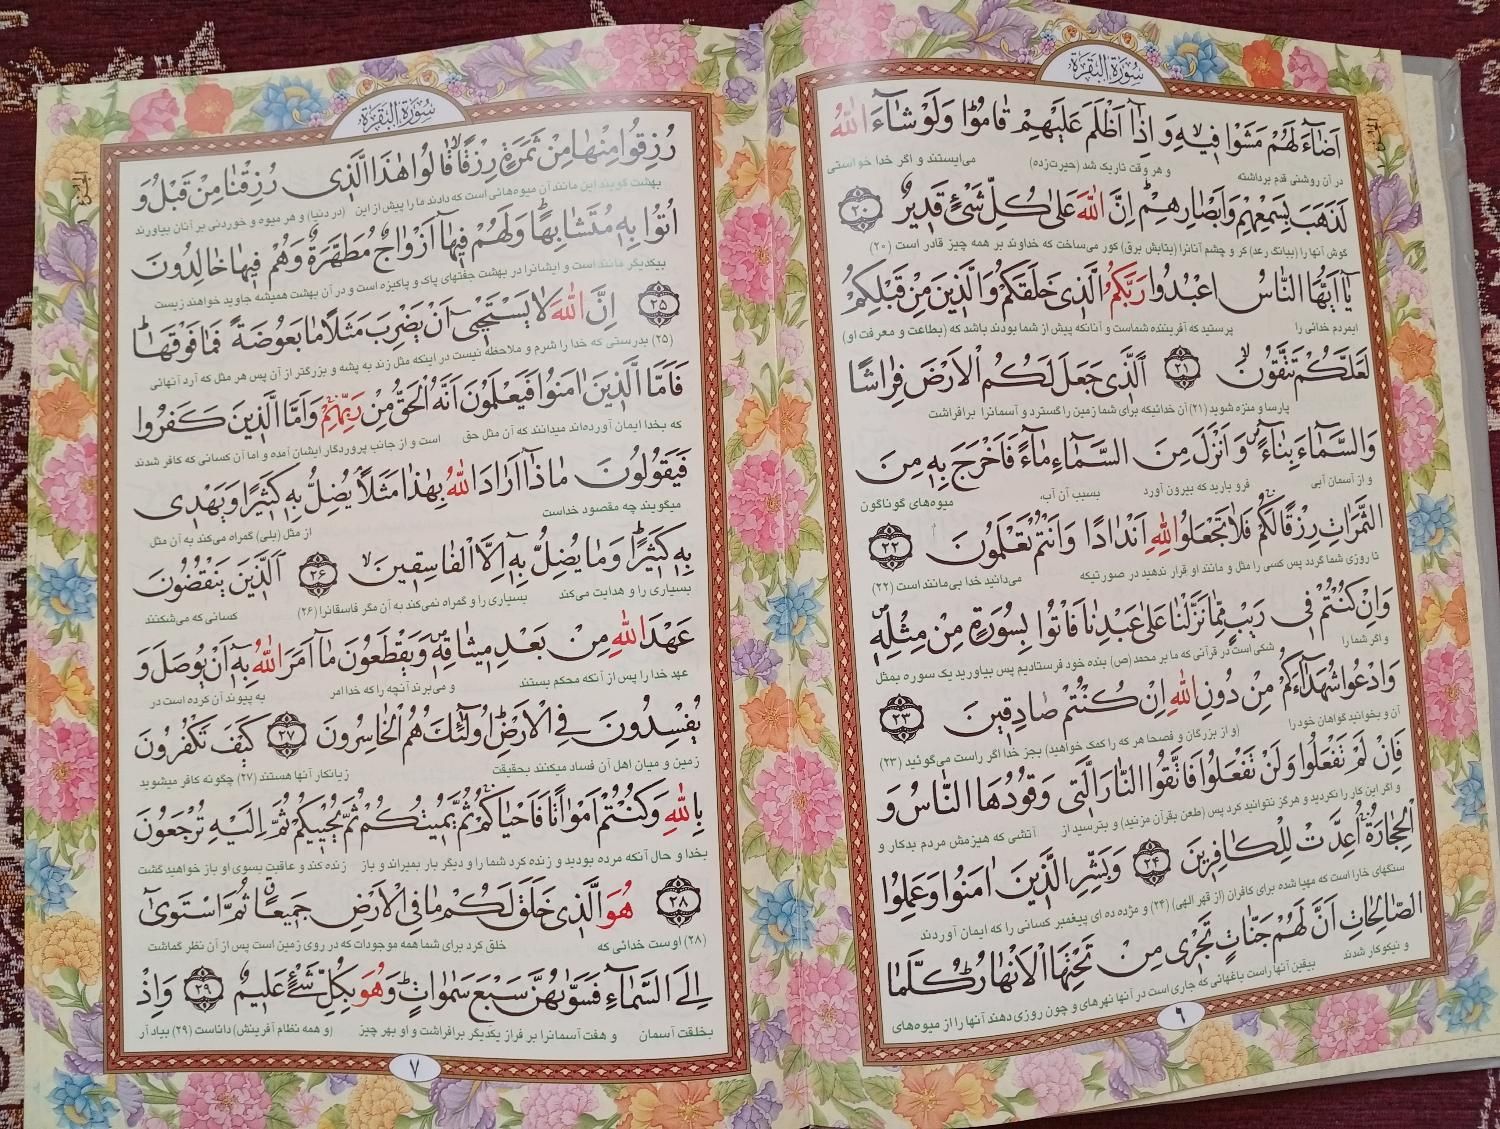 سُورَةُ الْبَقَرَةِ
اَضٰٓاءَ لَهُمْ مَشَوْا فيهِ وَ اِذٰٓا اَظْلَمَ عَلَيْهِمْ قٰامُوا وَلَوْ شٰٓاءَ اللّٰهُ
در آن روشنی قدم برداشته و هر وقت تاریک شد (حیرت‌زده) می‌ایستند و اگر خدا خواستی
لَذَهَبَ بِسَمْعِهِمْ وَاَبْصٰارِهِمْ اِنَّ اللّٰهَ عَلىٰ كُلِّ شَيْءٍ قَديرٌ ٢٠
گوش آنها را (ببانگ رعد) کر و چشم آنانرا (بتابش برق) کور می‌ساخت که خداوند بر همه چیز قادر است (۲۰)
يٰٓا اَيُّهَا النّٰاسُ اعْبُدُوا رَبَّكُمُ الَّذي خَلَقَكُمْ وَالَّذينَ مِنْ قَبْلِكُمْ
ایمردم خدائی را پرستید که آفریننده شماست و آنانکه پیش از شما بودند باشد که (بطاعت و معرفت او)
لَعَلَّكُمْ تَتَّقُونَ ٢١ اَلَّذي جَعَلَ لَكُمُ الْاَرْضَ فِرٰاشًا
پارسا و منزه شوید (۲۱) آن خدائیکه برای شما زمین را گسترد و آسمانرا برافراشت
وَالسَّمٰٓاءَ بِنٰٓاءً وَ اَنْزَلَ مِنَ السَّمٰٓاءِ مٰٓاءً فَاَخْرَجَ بِهٖ مِنَ
و از آسمان آبی فرو بارید که بیرون آورد بسبب آن آب، میوه‌های گوناگون
الثَّمَرٰاتِ رِزْقًا لَكُمْ فَلٰا تَجْعَلُوا لِلّٰهِ اَنْدٰادًا وَ اَنْتُمْ تَعْلَمُونَ ٢٢
تا روزی شما گردد پس کسی را مثل و مانند او قرار ندهید در صورتیکه می‌دانید خدا بی‌مانند است (۲۲)
وَاِنْ كُنْتُمْ في رَيْبٍ مِمّٰا نَزَّلْنٰا عَلىٰ عَبْدِنٰا فَأْتُوا بِسُورَةٍ مِنْ مِثْلِهٖ
و اگر شما را شکی است در قرآنی که ما بر محمد (ص) بنده خود فرستادیم پس بیاورید یک سوره بمثل
وَادْعُوا شُهَدٰٓاءَكُمْ مِنْ دُونِ اللّٰهِ اِنْ كُنْتُمْ صٰادِقينَ ٢٣
آن و بخوانید گواهان خود را (و از بزرگان و فصحا هر که را کمک خواهید) بجز خدا اگر راست می‌گوئید (۲۳)
فَاِنْ لَمْ تَفْعَلُوا وَلَنْ تَفْعَلُوا فَاتَّقُوا النّٰارَ الَّتي وَقُودُهَا النّٰاسُ وَ
و اگر این کار را نکردید و هرگز نتوانید کرد پس (طعن بقرآن مزنید) و بترسید از آتشی که هیزمش مردم بدکار و
الْحِجٰارَةُ اُعِدَّتْ لِلْكٰافِرينَ ٢٤ وَبَشِّرِ الَّذينَ اٰمَنُوا وَعَمِلُوا
سنگهای خارا است که مهیا شده برای کافران (از قهر الهی) (۲۴) و مژده ده ای پیغمبر کسانی را که ایمان آوردند
الصّٰالِحٰاتِ اَنَّ لَهُمْ جَنّٰاتٍ تَجْري مِنْ تَحْتِهَا الْاَنْهٰارُ كُلَّمٰا
و نیکوکار شدند بیقین آنها راست باغهائی که جاری است در آنها نهرهای و چون روزی دهند آنها را از میوه‌های
٦
سُورَةُ الْبَقَرَةِ
رُزِقُوا مِنْهٰا مِنْ ثَمَرَةٍ رِزْقًا قٰالُوا هٰذَا الَّذي رُزِقْنٰا مِنْ قَبْلُ وَ
بهشت گویند این مانند آن میوه‌هائی است که دادند ما را پیش از این (در دنیا) و هر میوه و خوردنی بر آنان بیاورند
اُتُوا بِهٖ مُتَشٰابِهًا وَلَهُمْ فيهٰٓا اَزْوٰاجٌ مُطَهَّرَةٌ وَهُمْ فيهٰا خٰالِدُونَ
بیکدیگر مانند است و ایشانرا در بهشت جفتهای پاک و پاکیزه است و در آن بهشت همیشه جاوید خواهند زیست
٢٥ اِنَّ اللّٰهَ لٰا يَسْتَحْيي اَنْ يَضْرِبَ مَثَلًا مٰا بَعُوضَةً فَمٰا فَوْقَهٰا
(۲۵) بدرستی که خدا را شرم و ملاحظه نیست در اینکه مثل زند به پشه و بزرگتر از آن پس هر مثل که آرد آنهائی
فَاَمَّا الَّذينَ اٰمَنُوا فَيَعْلَمُونَ اَنَّهُ الْحَقُّ مِنْ رَبِّهِمْ وَاَمَّا الَّذينَ كَفَرُوا
که بخدا ایمان آورده‌اند میدانند که آن مثل حق است و از جانب پروردگار ایشان آمده و اما آن کسانی که کافر شدند
فَيَقُولُونَ مٰاذٰٓا اَرٰادَ اللّٰهُ بِهٰذٰا مَثَلًا يُضِلُّ بِهٖ كَثيرًا وَيَهْدي
میگویند چه مقصود خداست از مثل (بلی) گمراه می‌کند به آن مثل
بِهٖ كَثيرًا وَمٰا يُضِلُّ بِهٖٓ اِلَّا الْفٰاسِقينَ ٢٦ اَلَّذينَ يَنْقُضُونَ
بسیاری را و هدایت می‌کند بسیاری را و گمراه نمی‌کند به آن مگر فاسقانرا (۲۶) کسانی که می‌شکنند
عَهْدَ اللّٰهِ مِنْ بَعْدِ ميثٰاقِهٖ وَيَقْطَعُونَ مٰٓا اَمَرَ اللّٰهُ بِهٖٓ اَنْ يُوصَلَ وَ
عهد خدا را پس از آنکه محکم بستند و می‌برند آنچه را که خدا امر به پیوند آن کرده است در
يُفْسِدُونَ فِي الْاَرْضِ اُولٰٓئِكَ هُمُ الْخٰاسِرُونَ ٢٧ كَيْفَ تَكْفُرُونَ
زمین و میان اهل آن فساد میکنند بحقیقت زیانکار آنها هستند (۲۷) چگونه کافر میشوید
بِاللّٰهِ وَكُنْتُمْ اَمْوٰاتًا فَاَحْيٰاكُمْ ثُمَّ يُميتُكُمْ ثُمَّ يُحْييكُمْ ثُمَّ اِلَيْهِ تُرْجَعُونَ
بخدا و حال آنکه مرده بودید و زنده کرد شما را و دیگر بار بمیراند و باز زنده کند و عاقبت بسوی او باز خواهید گشت
٢٨ هُوَ الَّذي خَلَقَ لَكُمْ مٰا فِي الْاَرْضِ جَميعًا ثُمَّ اسْتَوىٰٓ
(۲۸) اوست خدائی که خلق کرد برای شما همه موجودات که در روی زمین است پس از آن نظر گماشت
اِلَى السَّمٰٓاءِ فَسَوّٰىهُنَّ سَبْعَ سَمٰوٰاتٍ وَهُوَ بِكُلِّ شَيْءٍ عَليمٌ ٢٩ وَاِذْ
بخلقت آسمان و هفت آسمانرا بر فراز یکدیگر برافراشت و او بهر چیز (و همه نظام آفرینش) داناست (۲۹) بیاد آر
٧